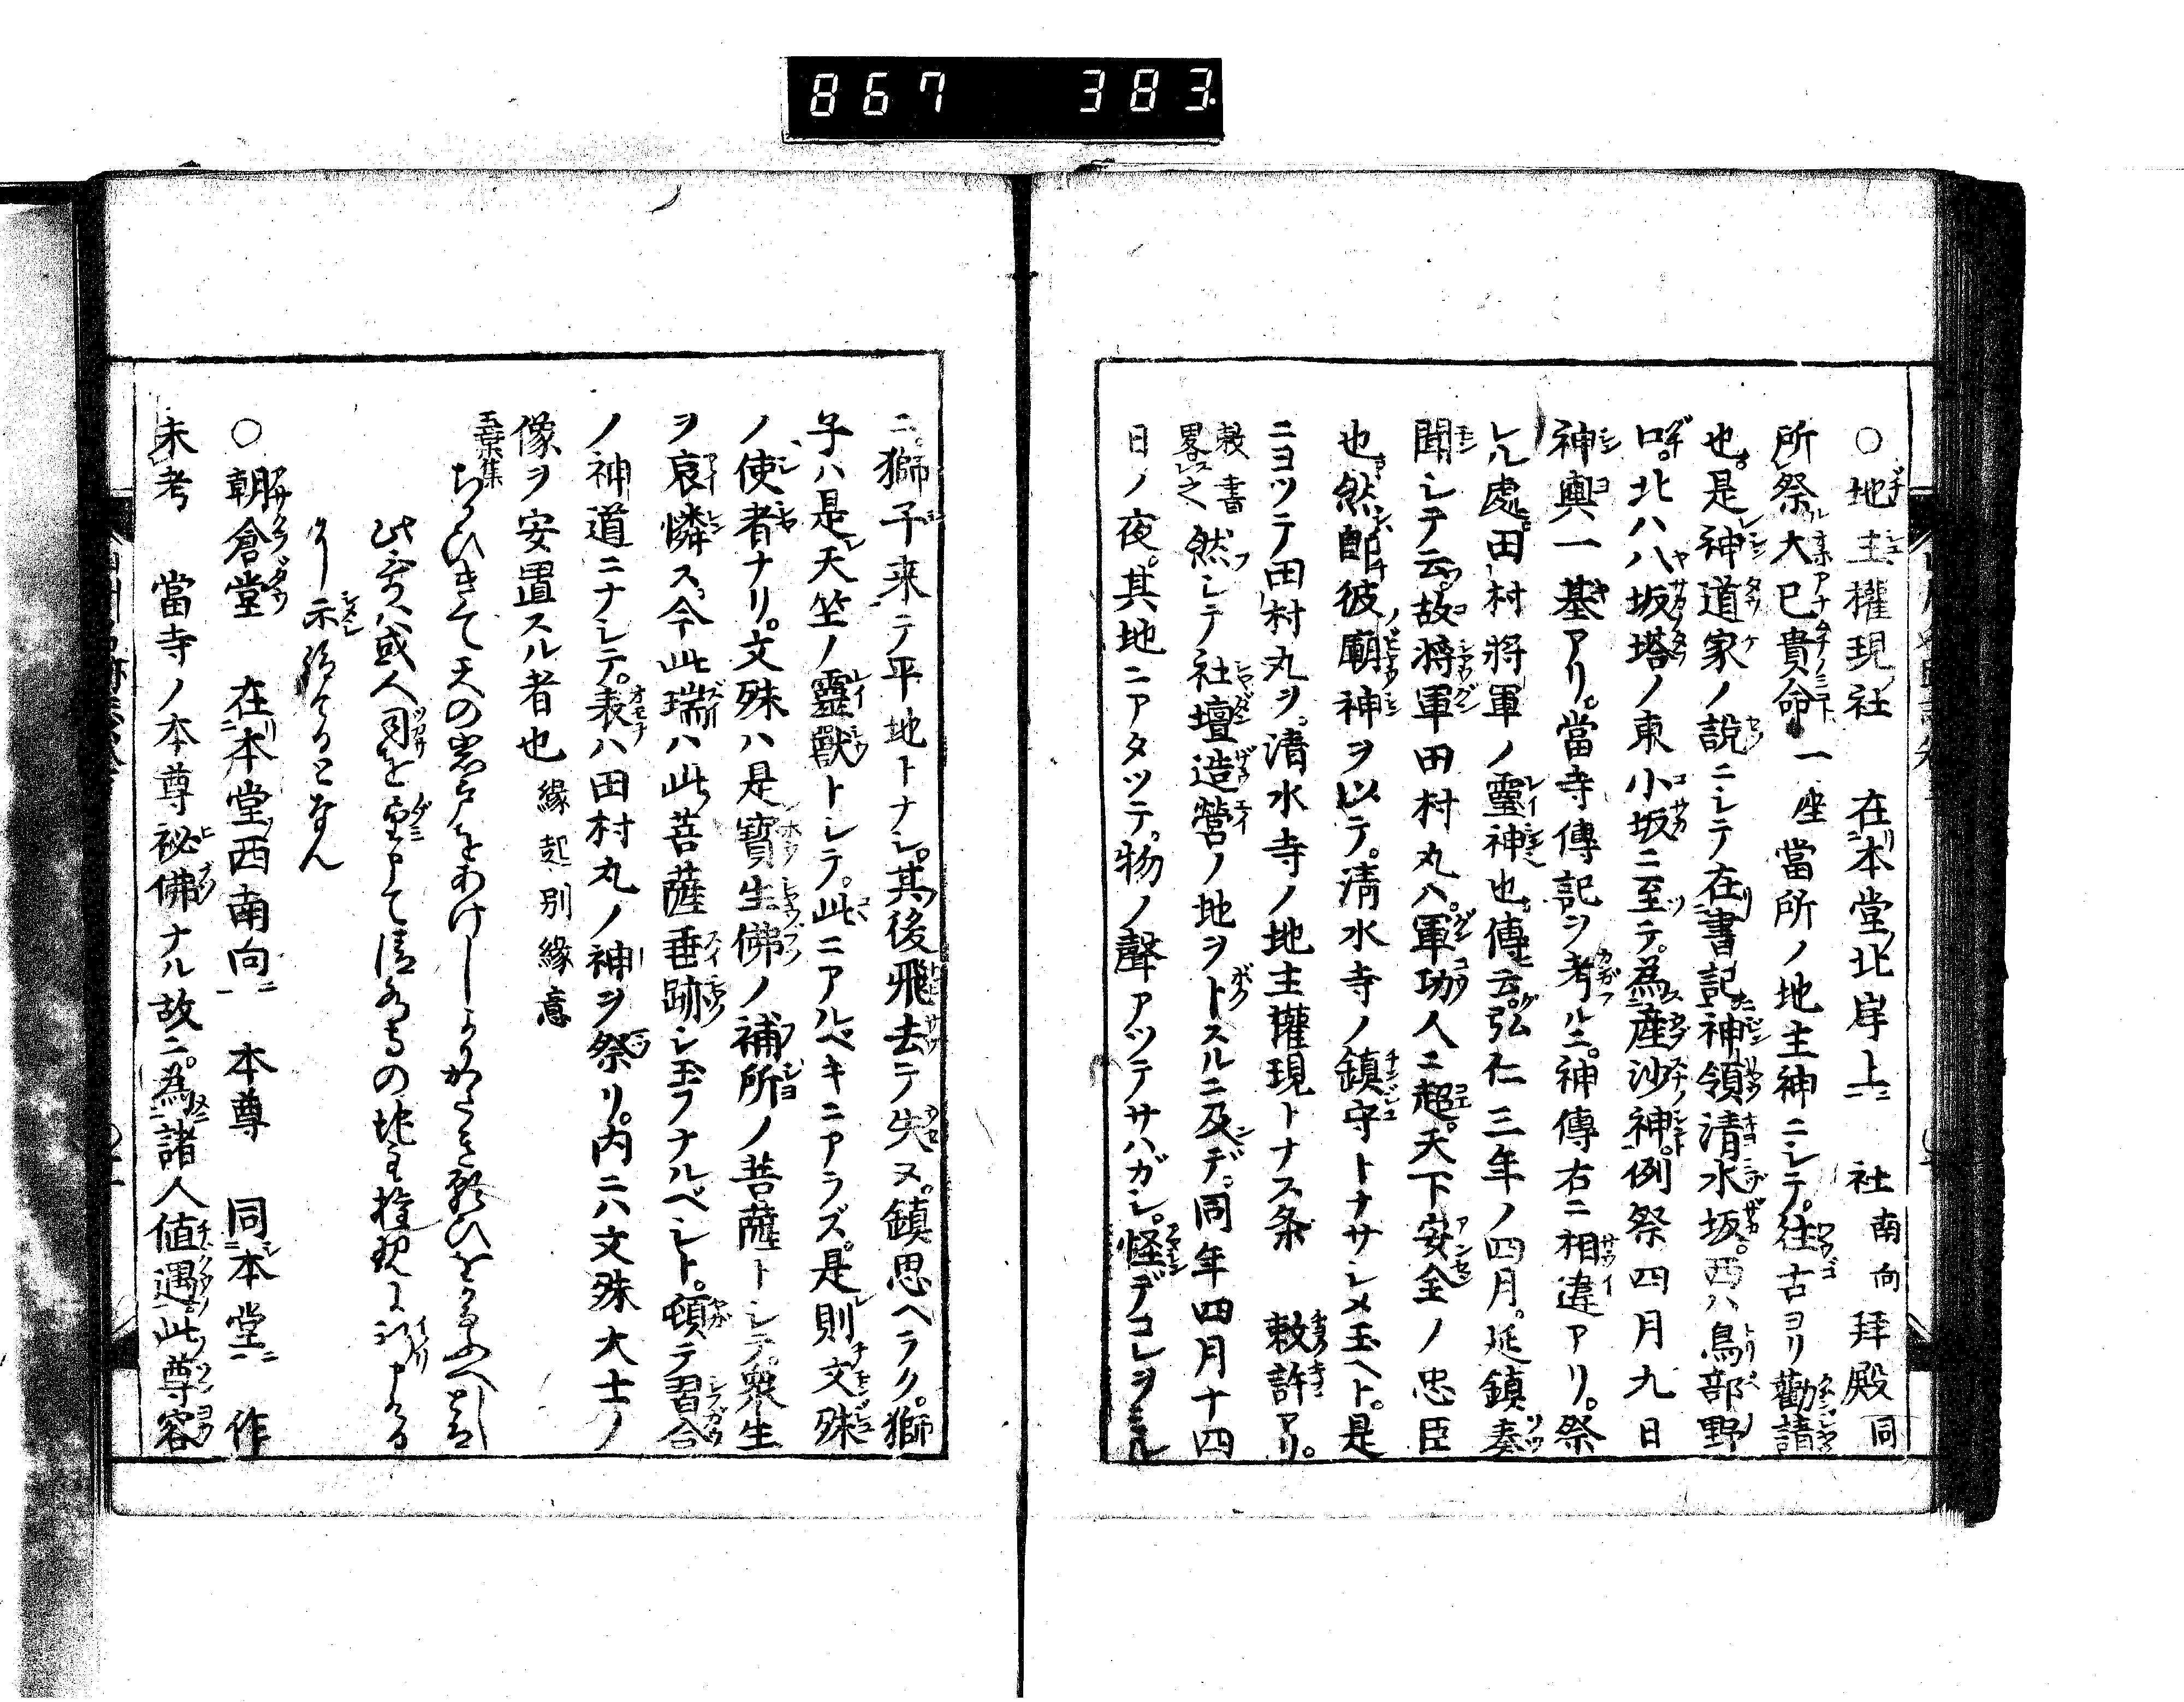 867 383
○地主權現社 在本堂北岸上ニ 社南向拜殿同
所祭大巳貴命一座 當所ノ地主神ニシテ往古ヨリ勸請
也是神道家ノ説ニシテ在書記神領清水坂西ハ鳥部野
口北ハ八坂塔ノ東小坂ニ至テ為産沙神例祭四月九日
神輿一基アリ當寺傳記ヲ考ルニ神傳右ニ相違アリ祭
ル處田村將軍ノ靈神也傳云弘仁三年ノ四月延鎮奏
聞シテ云故將軍田村丸ハ軍功人ニ超天下安全ノ忠臣
也然即彼廟神ヲ以テ清水寺ノ鎮守トナサシメ玉ヘト是
ニヨツテ田村丸ヲ清水寺ノ地主權現トナス条 敕許アリ
敕書畧之 然シテ社壇造營ノ地ヲトスルニ及デ同年四月十四
日ノ夜其地ニアタツテ物ノ聲アツテサハガシ怪デコレヲミル
ニ獅子来テ平地トナシ其後飛去テ失ヌ鎮思ヘラク獅
子ハ是天竺ノ靈獸トシテ此ニアルベキニアラズ是則文殊
ノ使者ナリ文殊ハ是寶生佛ノ補所ノ菩薩トシテ衆生
ヲ哀憐ス今此瑞ハ此菩薩垂跡シ玉フナルベシト頓テ習合
ノ神道ニナシテ表ハ田村丸ノ神ヲ祭リ内ニハ文殊大士ノ
像ヲ安置スル者也 緣起別緣意
玉葉集 ちかひきて天の岩戸をあけしよりかたき願ひを
此哥ハ或人司を望申て清水寺の地主權現に祈申ける
けし示給へるとなん
○朝倉堂 在本堂西南向ニ 本尊 同本堂ニ 作
未考 當寺ノ本尊祕佛ナル故ニ為諸人值遇此尊容